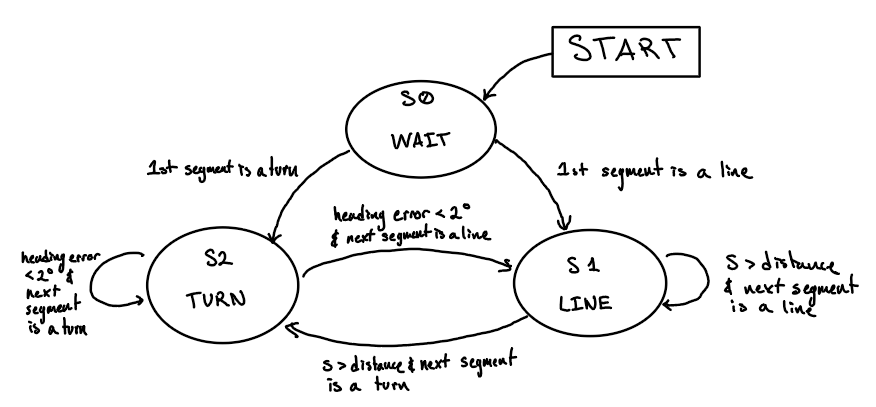 START
SØ
WAIT
1st segment is a turn
1st segment is a line
heading error < 2°
& next segment is a line
heading error
< 2° &
next
segment
is a turn
S2
TURN
S1
LINE
S > distance
& next segment
is a line
S > distance & next segment
is a turn